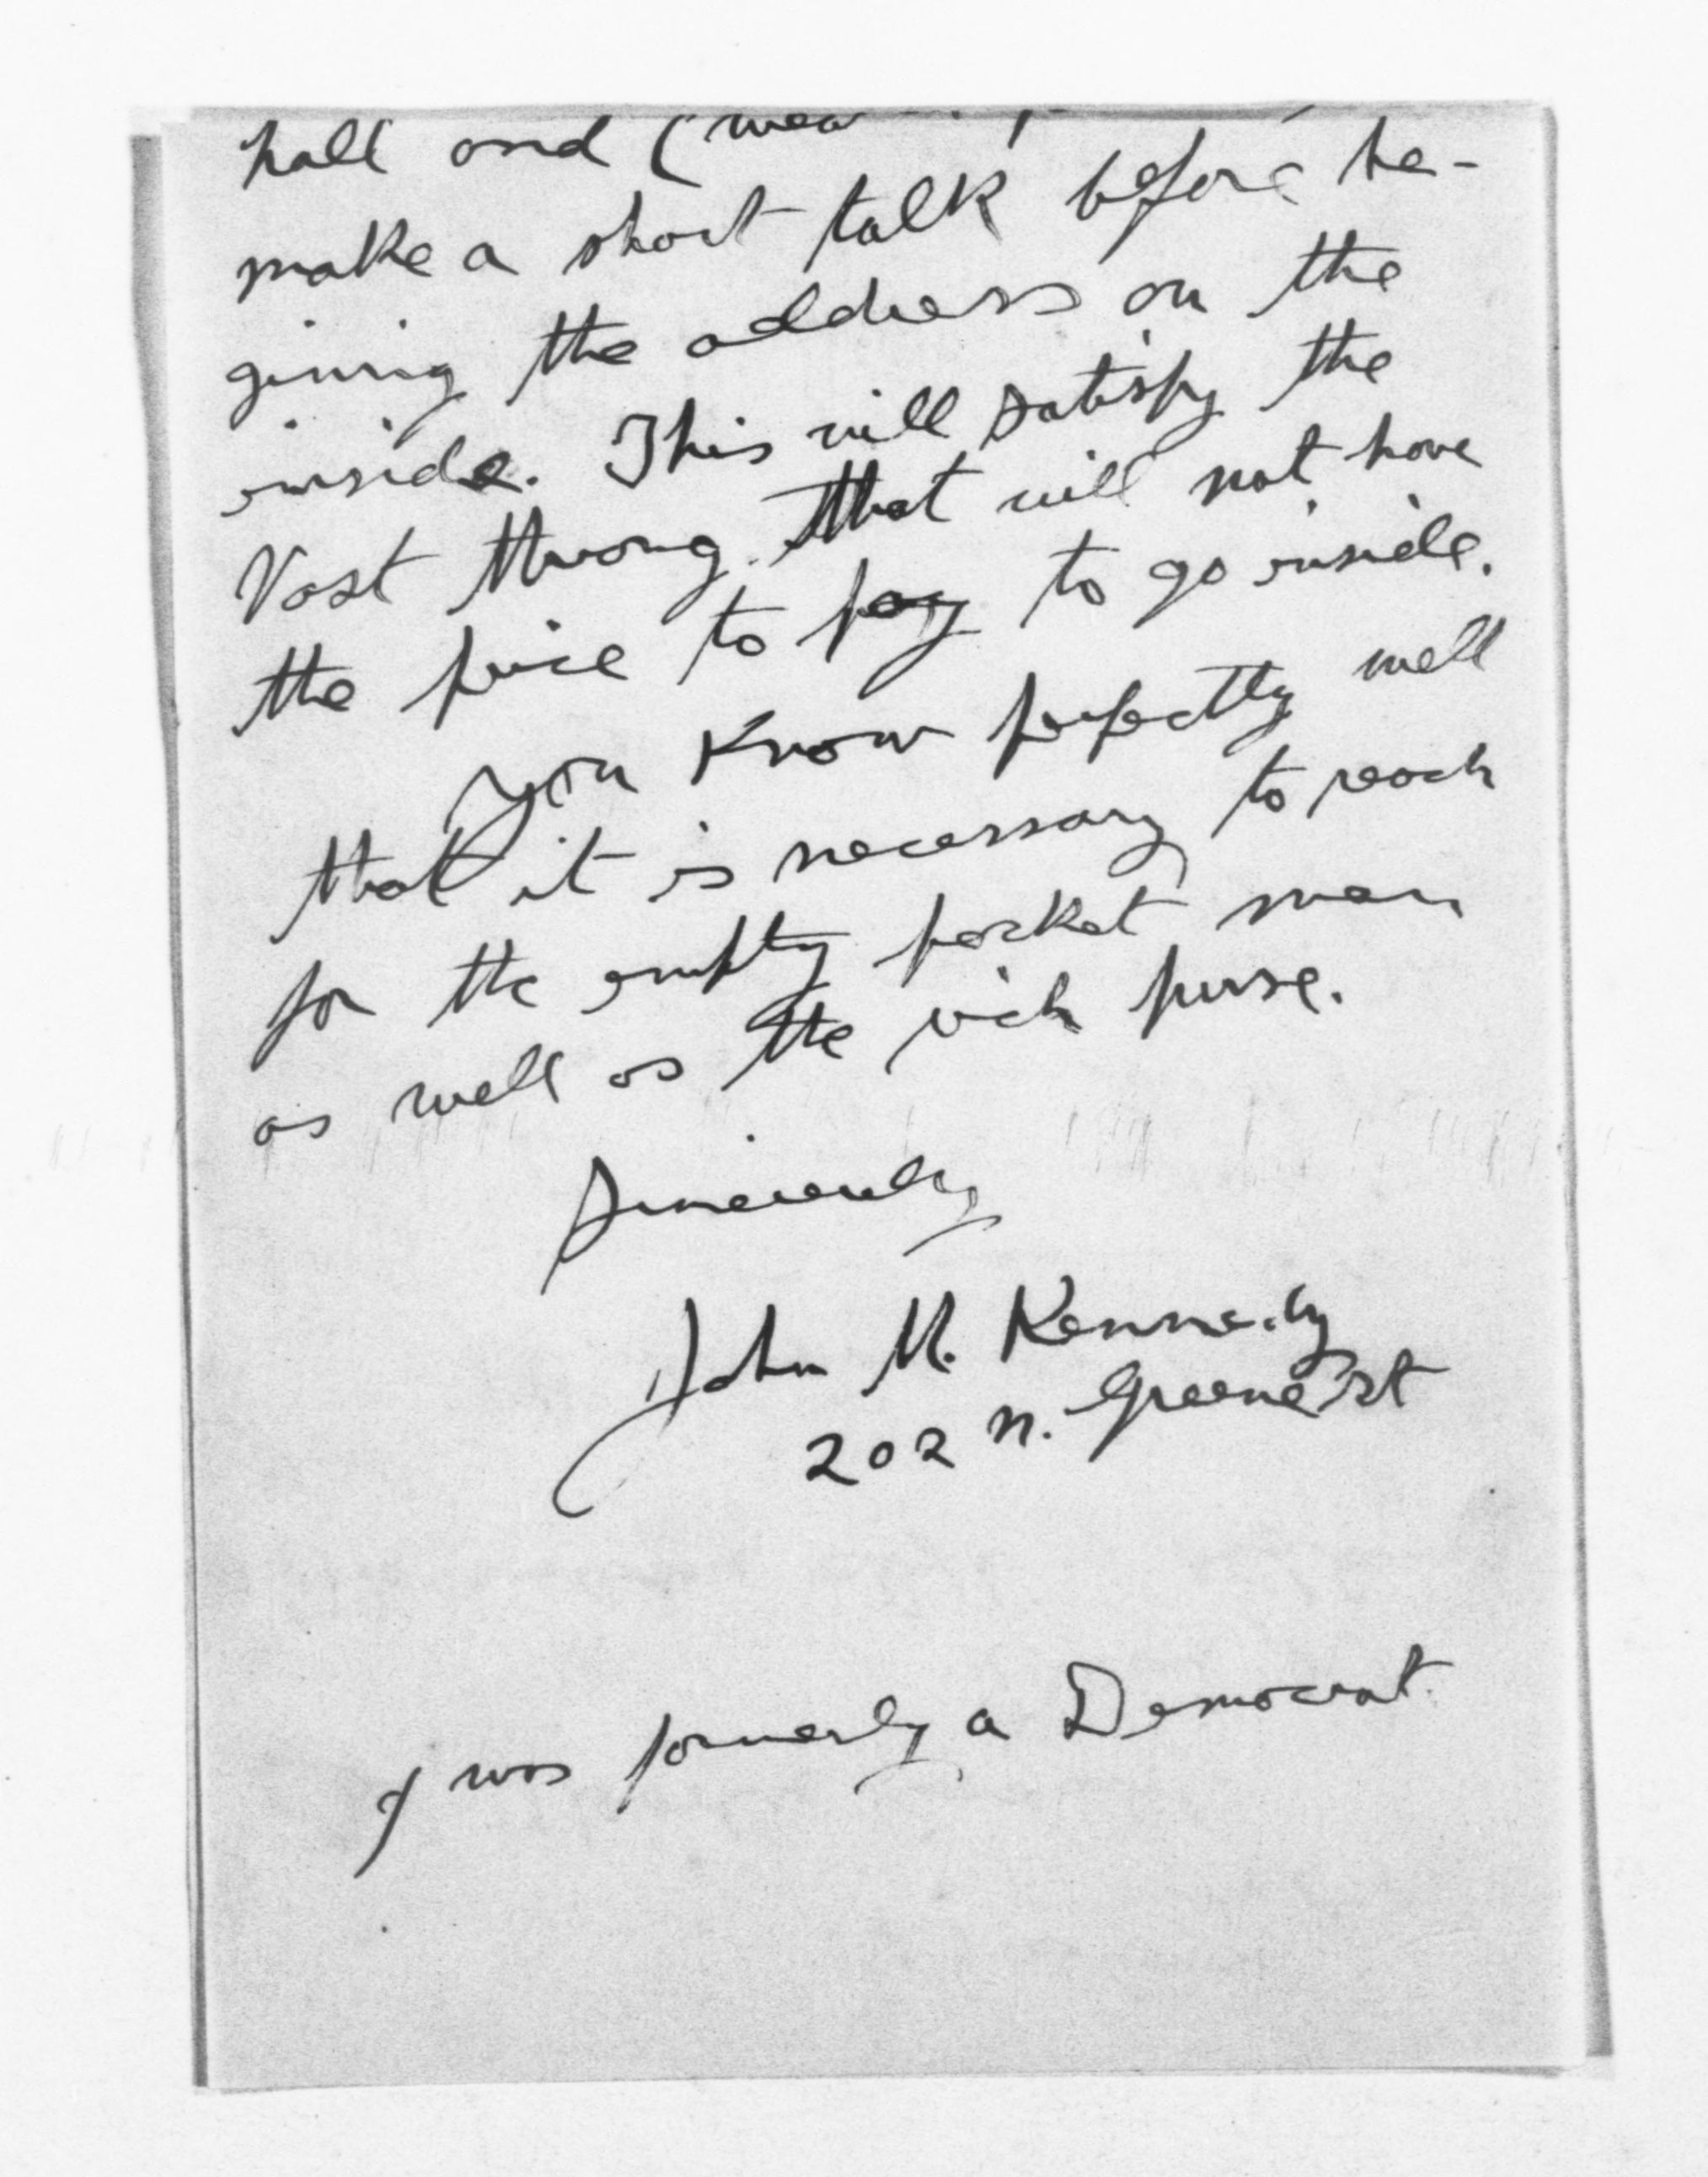 hall and (
make a short talk before he-
giving the address on the
inside. This will satisfy the
Vast throng that will not have
the price to pay to go inside.
You Know perfectly well
that it is necessary to reach
for the empty pocket man
as well as the rich purse.
Sincerely
John M. Kennedy
202 N. Greene St
I was formerly a Democrat.